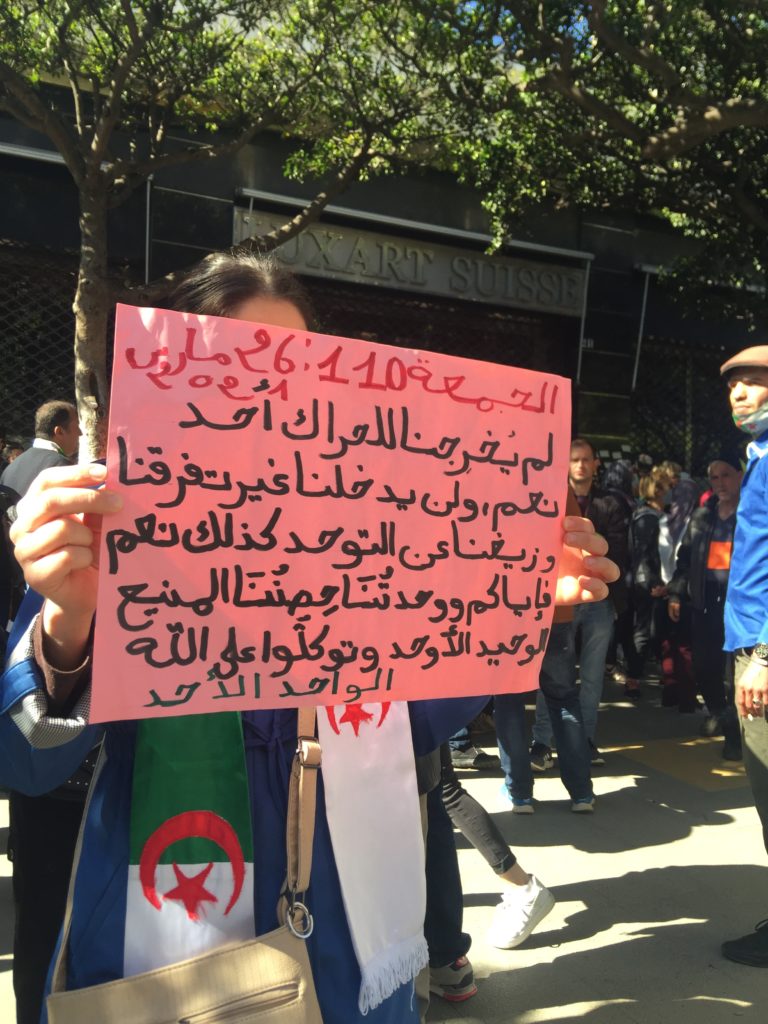 LUXART SUISSE
الجمعة 110: 26 مارس
2021
لم يُخرجنا للحراك أحد
نعم، ولن يدخلنا غير تفرقنا
وزيغنا عن التوحد كذلك نعم
فإياكم ووحدتُنَا حِصنُنَا المنيع
الوحيد الأوحد وتوكلّوا على اللّه
الواحد الأحد